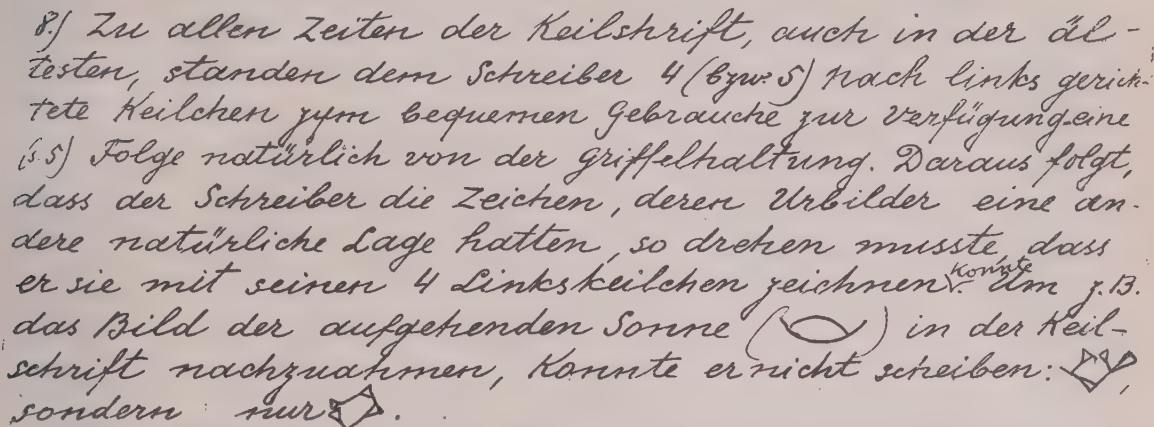 8.) Zu allen Zeiten der Keilshrift, auch in der äl-
testen, standen dem Schreiber 4 (bzw. 5) nach links gerich-
tete Keilchen zum bequemen Gebrauche zur Verfügung-eine
(s. 5) Folge natürlich von der Griffelhaltung. Daraus folgt,
dass der Schreiber die Zeichen, deren Urbilder eine an-
dere natürliche Lage hatten, so drehen musste, dass
er sie mit seinen 4 Linkskeilchen zeichnen konnte. Um z.B.
das Bild der aufgehenden Sonne ( ) in der Keil-
schrift nachzuahmen, konnte er nicht scheiben: ,
sondern nur .